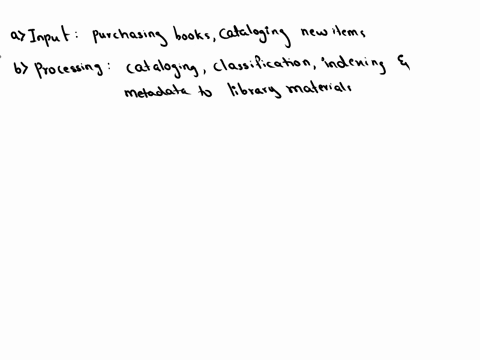 a> Input: purchasing books, cataloging new items
b> Processing: cataloging, classification, indexing &
metadata to library materials